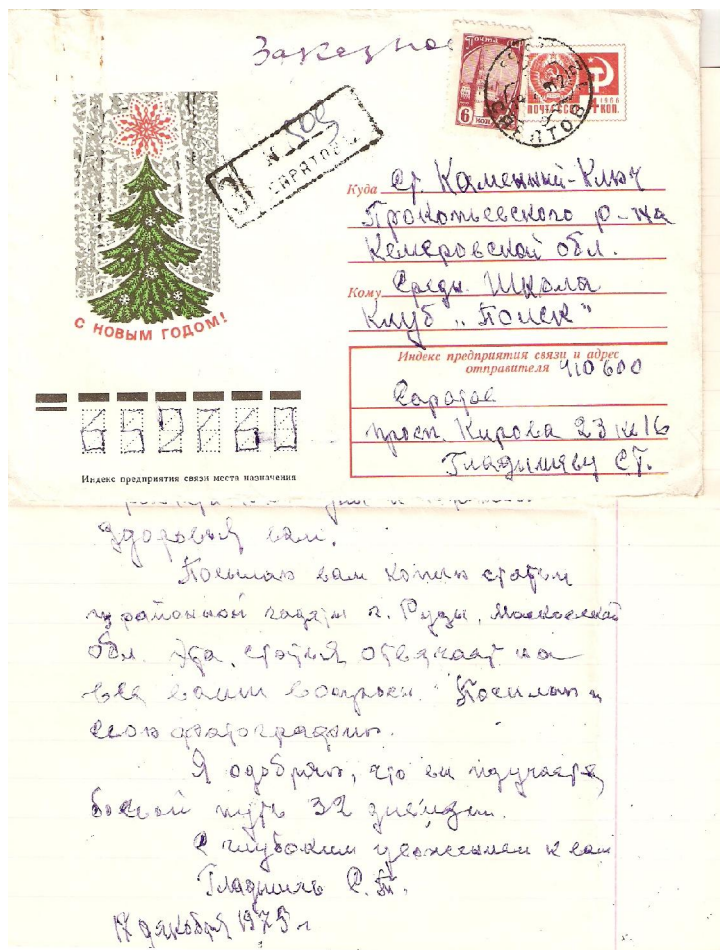 Заказное
Почта
6 коп
ПОЧТА СССР
1966
4 КОП.
САРАТОВ
З
N 509
САРАТОВ
С НОВЫМ ГОДОМ!
Куда ст. Каменный-Ключ
Прокопьевского р-на
Кемеровской обл.
Кому Средн. Школа
Клуб „Поиск"
Индекс предприятия связи и адрес
отправителя 410600
Саратов
просп. Кирова 23 кв 16
Гладышеву С.Т.
Индекс предприятия связи места назначения
и
здоровья вам.
Посылаю вам копию статьи
из районной газеты г. Рузы, Московской
обл. Эта статья отвечает на
все ваши вопросы. Посылаю и
свою фотографию.
Я одобряю, что вы изучаете
боевой путь 32 дивизии.
С глубоким уважением к вам
Гладышев С.Т.
17 декабря 1975 г